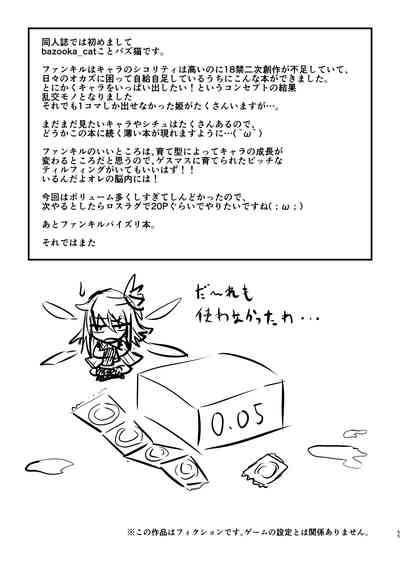 同人誌では初めまして
bazooka_catことバズ猫です。
ファンキルはキャラのシコリティは高いのに18禁二次創作が不足していて、
日々のオカズに困って自給自足しているうちにこんな本ができました。
とにかくキャラをいっぱい出したい！というコンセプトの結果
乱交モノとなりました
それでも1コマしか出せなかった姫がたくさんいますが…。
まだまだ見たいキャラやシチュはたくさんあるので、
どうかこの本に続く薄い本が現れますように…(´ω`)
ファンキルのいいところは、育て型によってキャラの成長が
変わるところだと思うので、ゲスマスに育てられたビッチな
ティルフィングがいてもいいはず！！
いるんだよオレの脳内には！
今回はボリューム多くしすぎてしんどかったので、
次やるとしたらロスラグで20Pぐらいでやりたいですね(；ω；)
あとファンキルパイズリ本。
それではまた
だ～れも
使わなかったわ・・・
0.05
※この作品はフィクションです。ゲームの設定とは関係ありません。